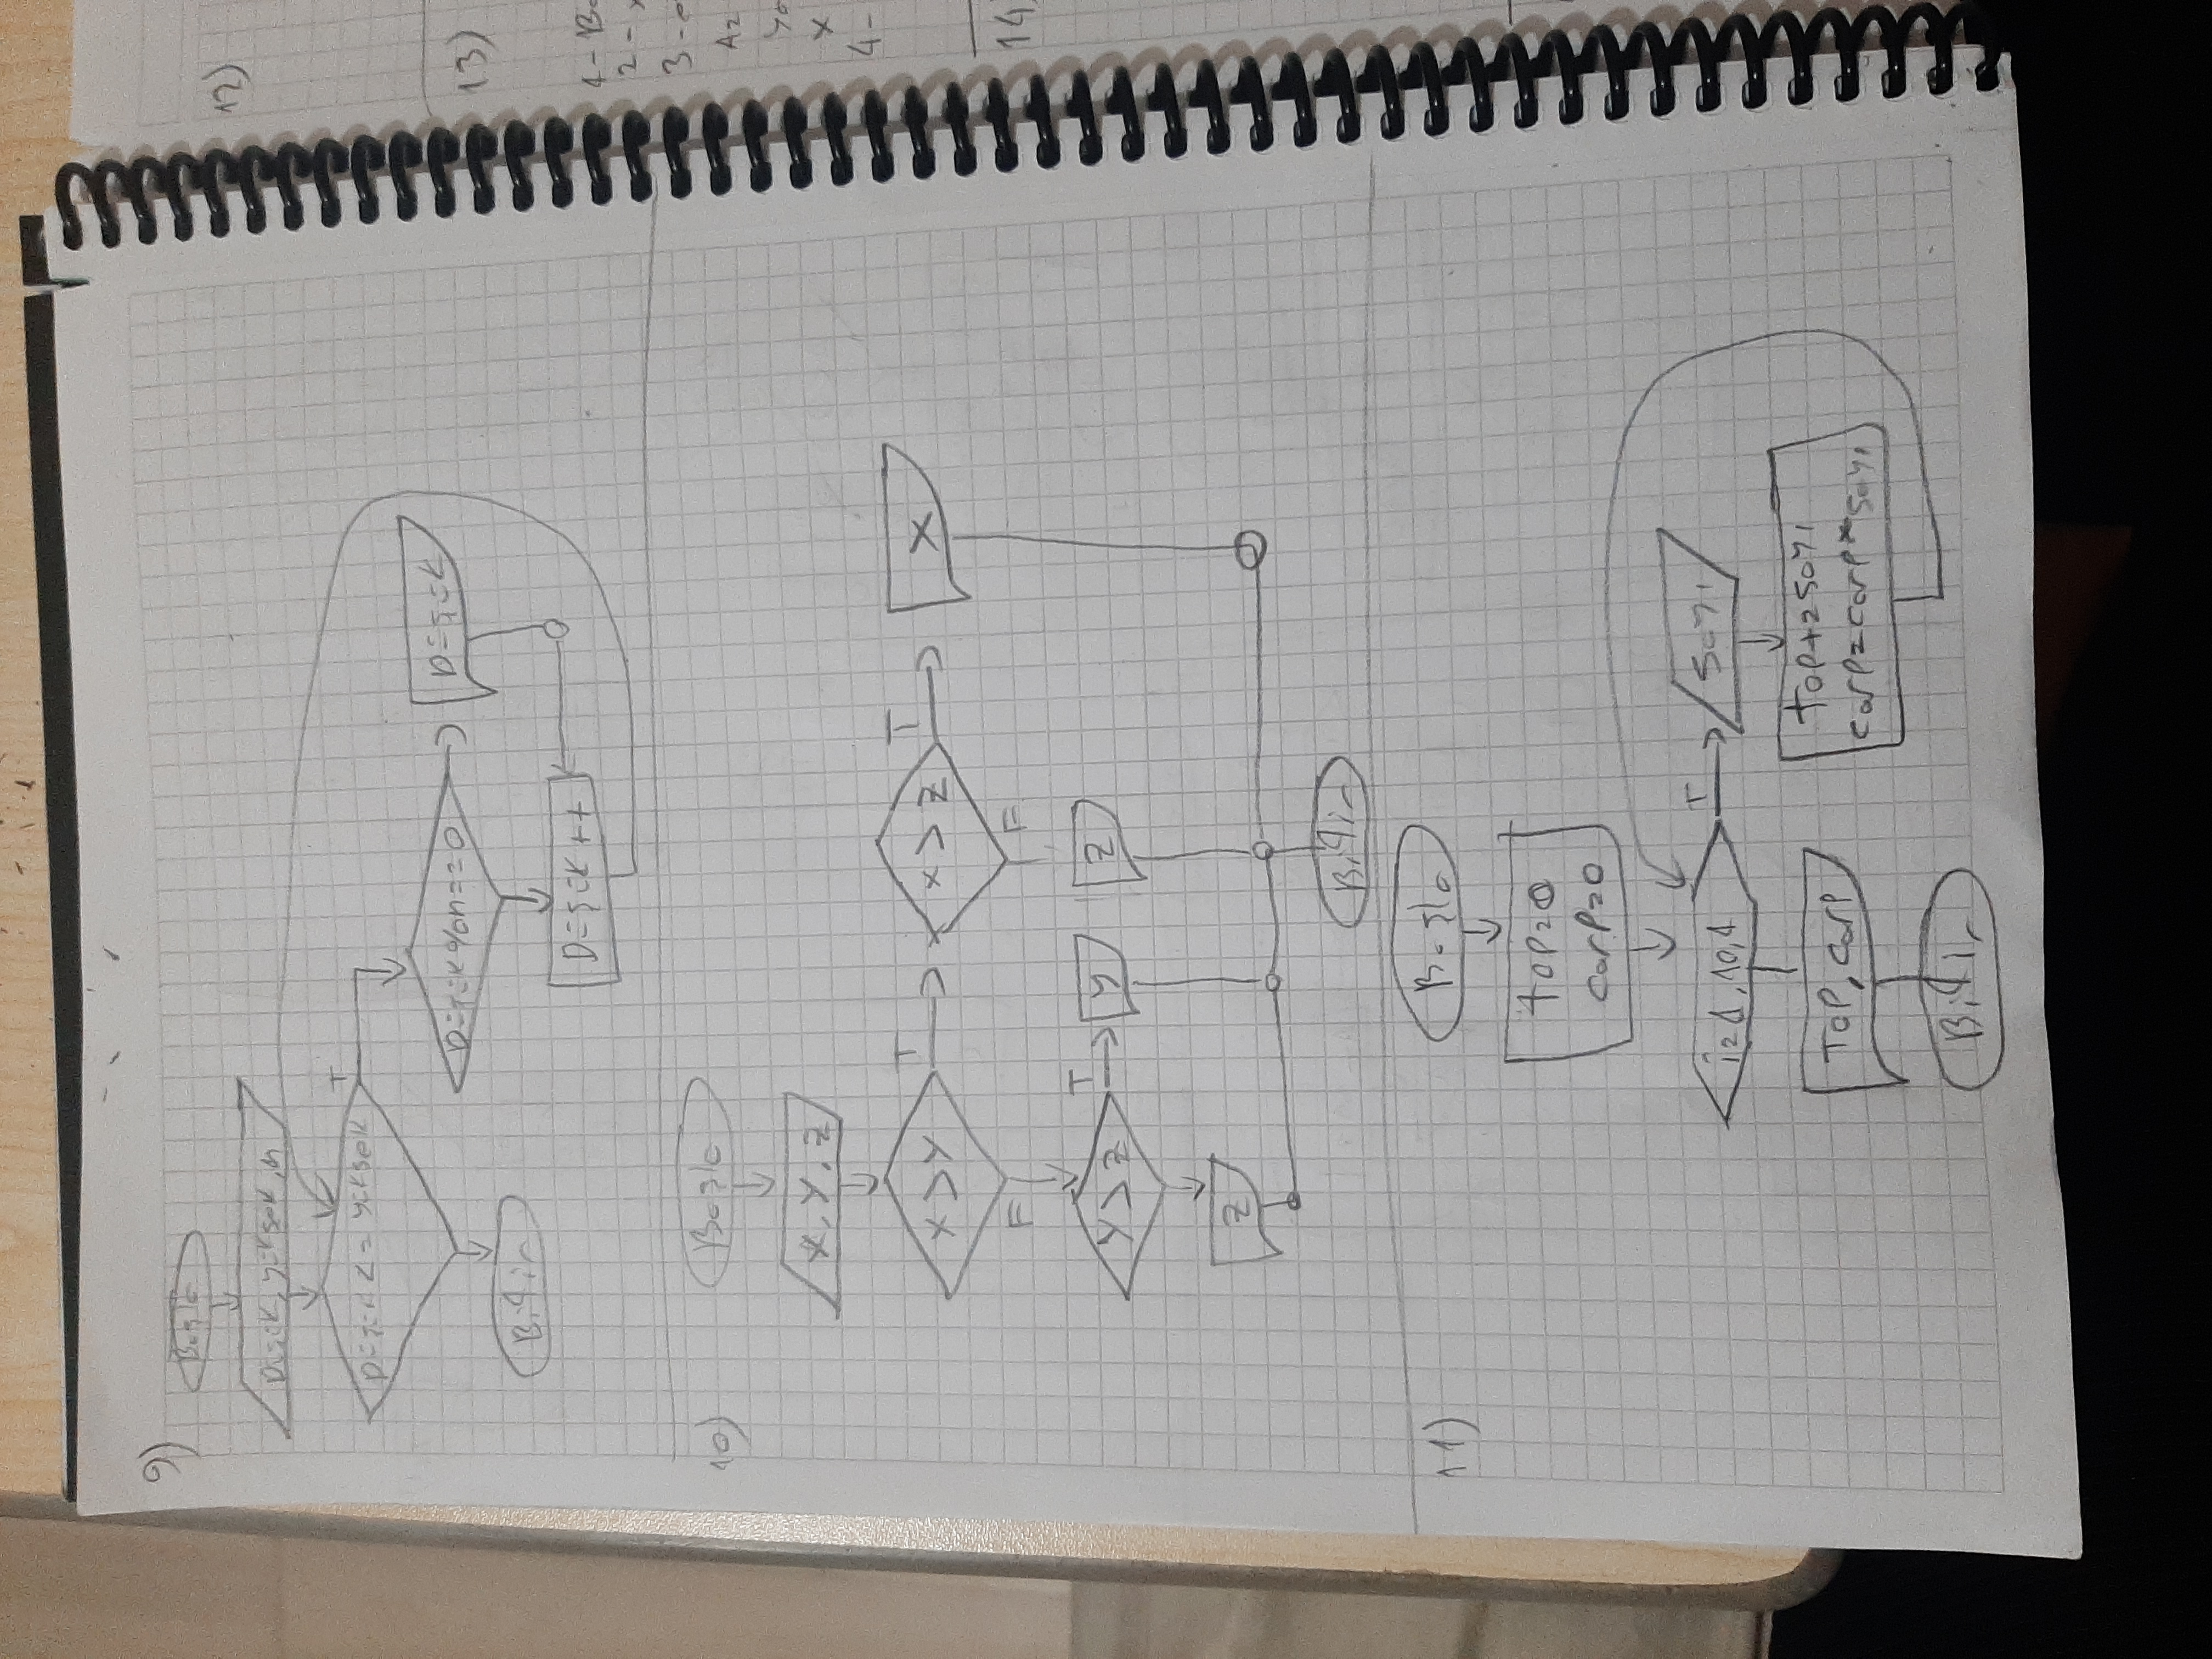 9)
Başla
Düşük, yüksek, n
Düşük <= yüksek
T
Düşük%n==0
Düşük
Bitir
Düşük++
10)
Başla
X, Y, Z
X>Y
T
X>Z
T
X
F
F
Y>Z
T
Y
Z
Z
Bitir
11)
Başla
top=0
carp=0
i=1,10,1
T
Sayı
top+=sayı
carp=carp*sayı
Top, carp
Bitir
12)
13)
1-
2-
3-
Az
X
4-
14)